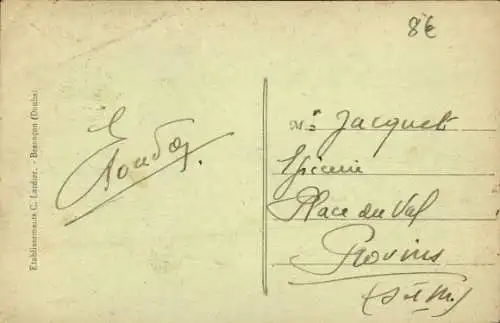 8€
Etablissements C. Lardier. - Besançon (Doubs)
Jacquet
Epicerie
Place du Val
Provins
(S et M.)